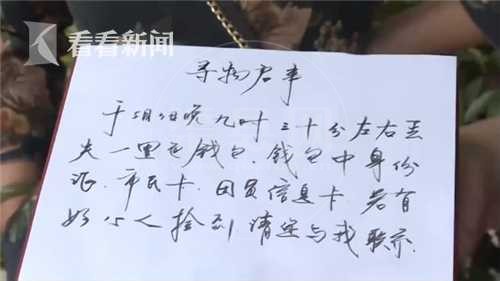 看看新闻
寻物启事
于 晚九时三十分左右丢
失一黑色钱包.钱包中身份
证.市民卡.团员信息卡 若有
好心人捡到 请速与我联系.